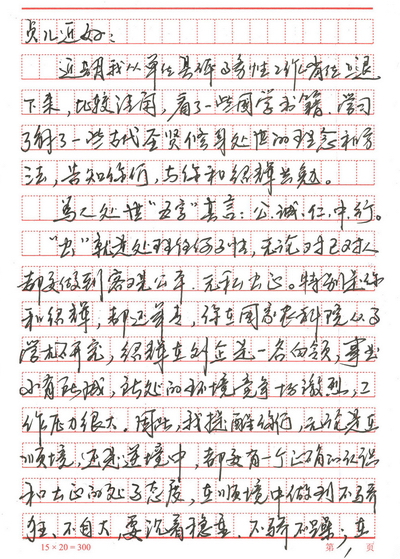 贞儿近好：
近期我从单位具体事务性工作岗位上退
下来，比较清闲，看了一些国学书籍，学习
了解了一些古代圣贤修身处世的理念和方
法，告知你们，与你和绍辉共勉。
为人处世“五字”真言：公、诚、仁、中、行。
“公”就是处理任何事情，无论对己对人
都要做到客观公平、无私公正。特别是你
和绍辉，都还年青，你在国家农科院从事
学术研究，绍辉在外企是一名白领，事业
小有所成，所处的环境竞争场激烈，工
作压力很大。因此，我提醒你们，无论是在
顺境，还是逆境中，都要有一个正确的认识
和公正的处事态度，在顺境中做到不骄
狂、不自大，要沉着稳重、不骄不躁；在
15×20=300 第 1 页